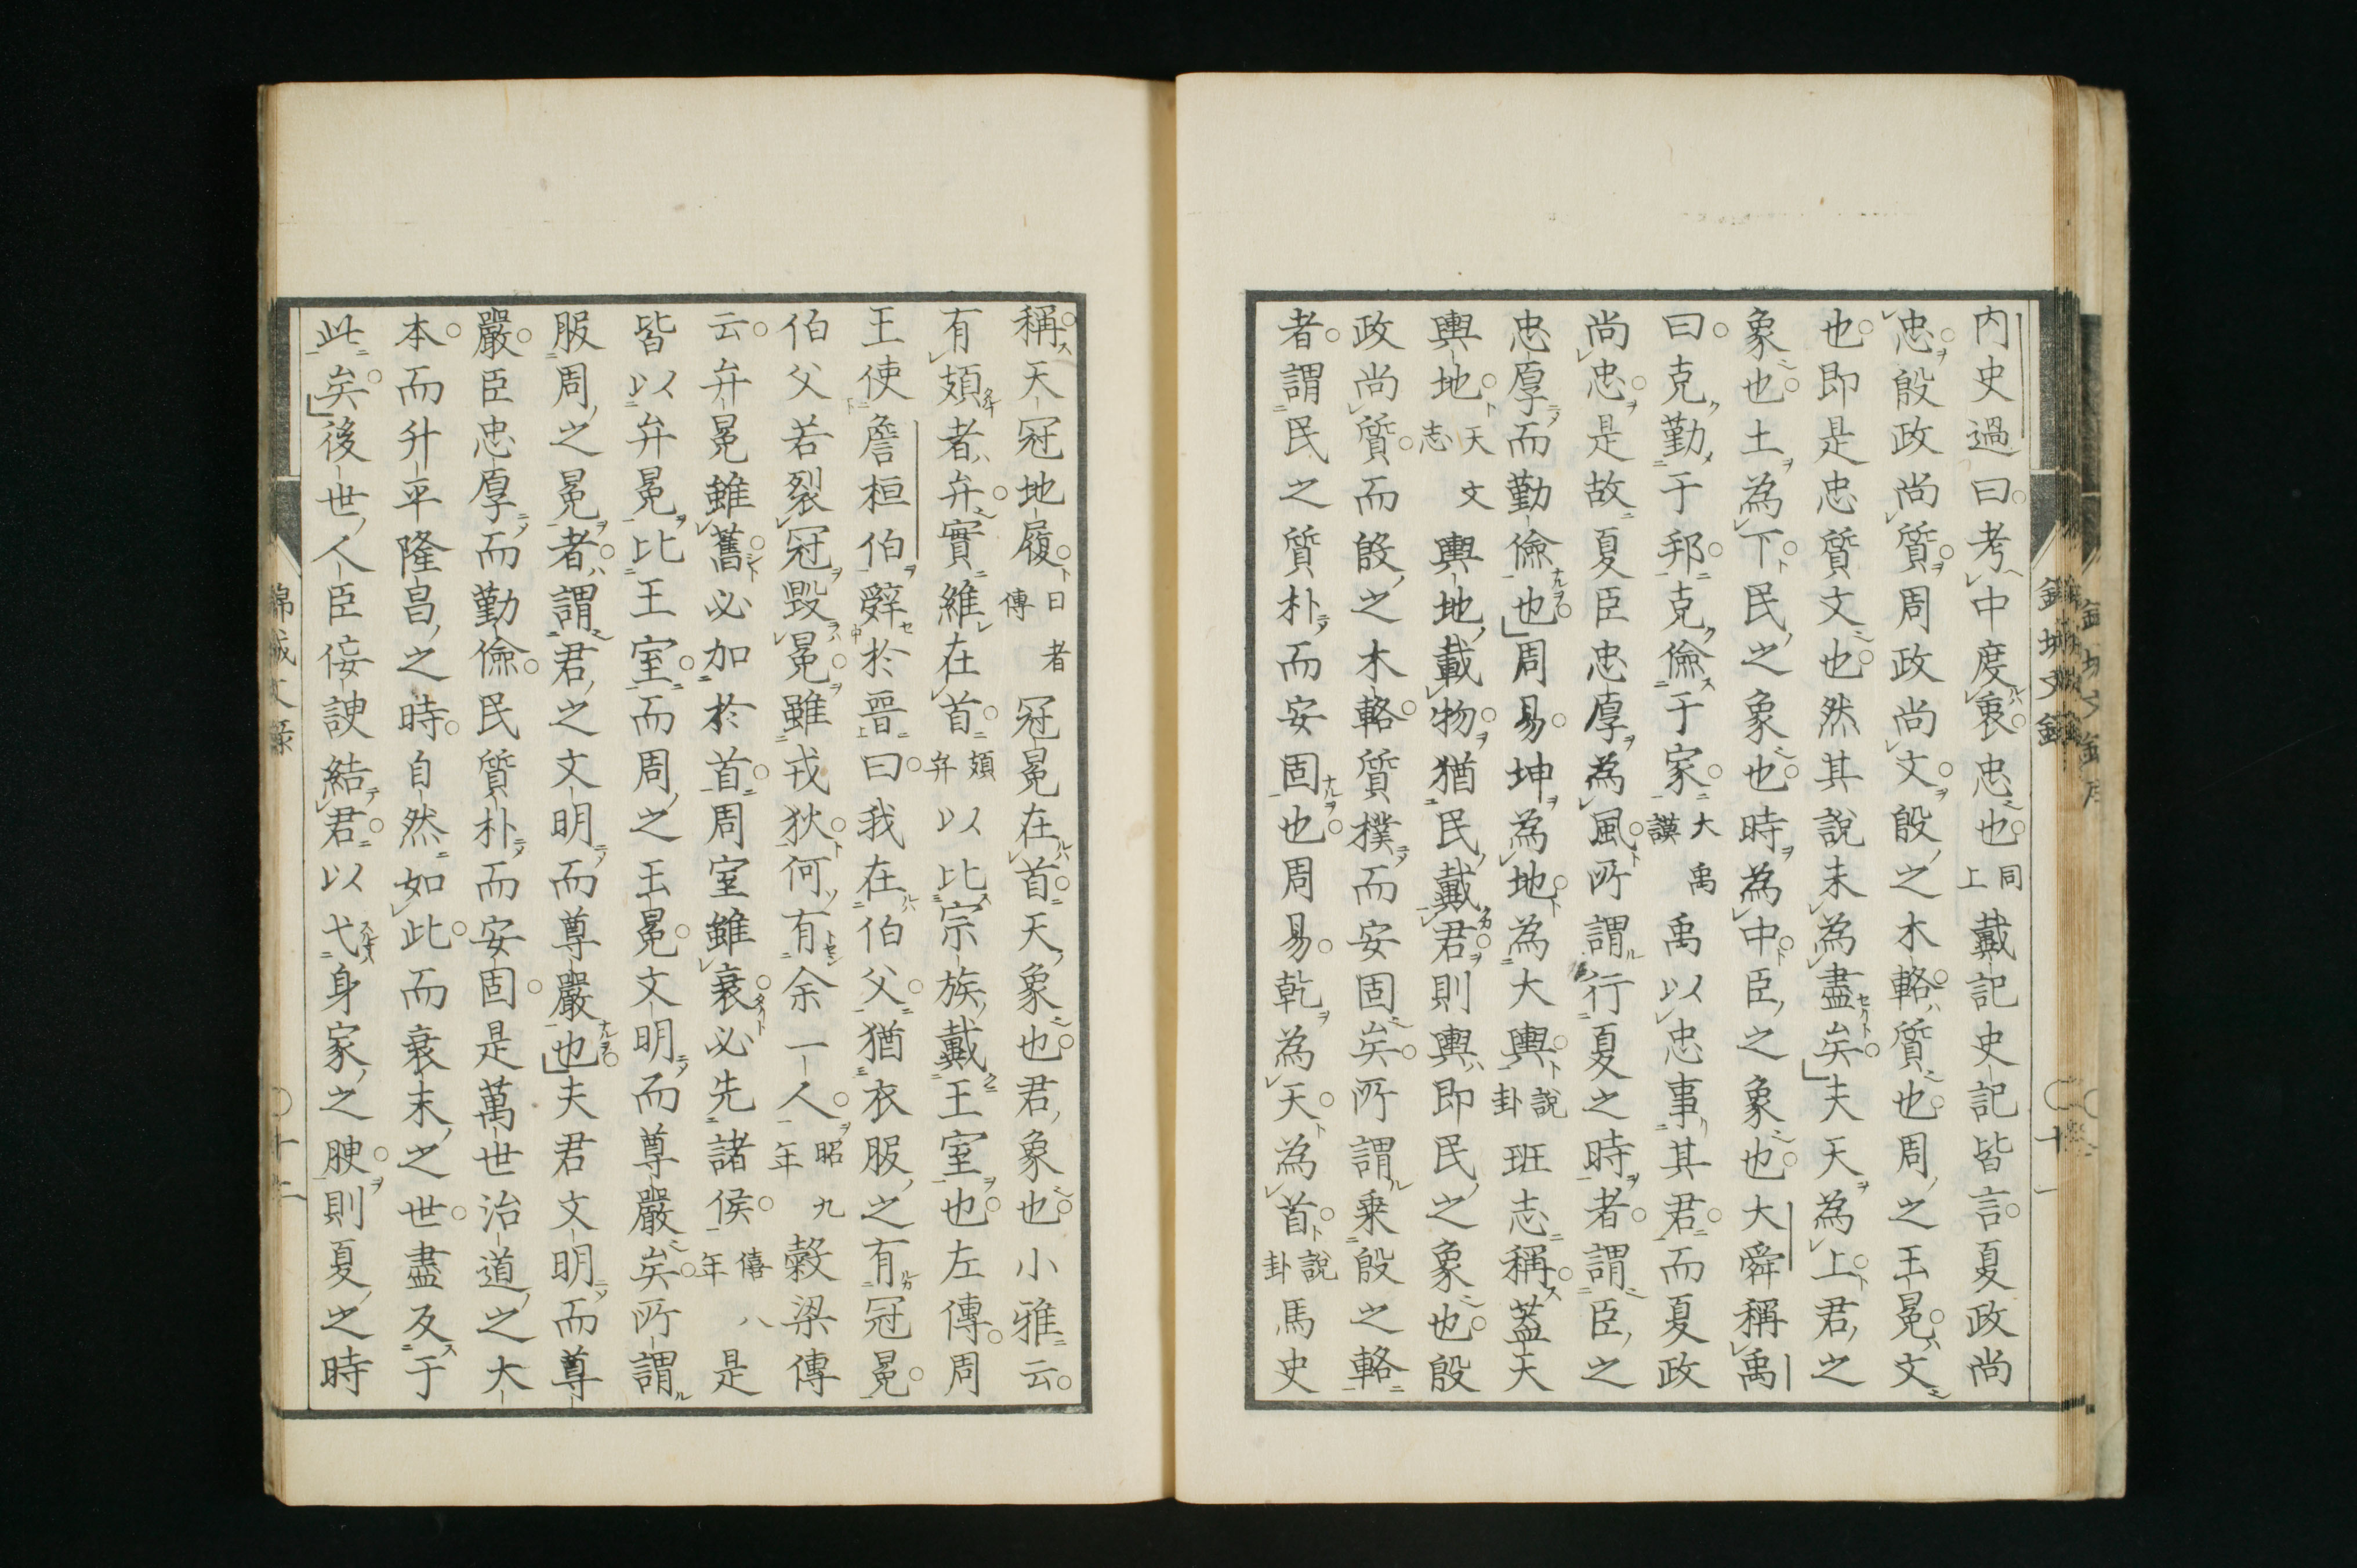 内史過曰考中度衷忠也同上戴記史記皆言夏政尚
忠殷政尚質周政尚文殷之木輅質也周之王冕文
也即是忠質文也然其說未為盡矣夫天為上君之
象也土為下民之象也時為中臣之象也大舜稱禹
曰克勤于邦克儉于家大禹謨禹以忠事其君而夏政
尚忠是故夏臣忠厚為風所謂行夏之時者謂臣之
忠厚而勤儉也周易坤為地為大輿說卦班志稱蓋天
輿地天文志輿地載物猶民戴君則輿即民之象也殷
政尚質而殷之木輅質樸而安固矣所謂乗殷之輅
者謂民之質朴而安固也周易乾為天為首說卦馬史
稱天冠地履日者傳冠冕在首天象也君象也小雅云
有頍者弁實維在首頍弁以比宗族戴王室也左傳周
王使詹桓伯辭於晉曰我在伯父猶衣服之有冠冕
伯父若裂冠毀冕雖戎狄何有余一人昭九年穀梁傳
云弁冕雖舊必加於首周室雖衰必先諸侯僖八年是
皆以弁冕比王室而周之王冕文明而尊嚴矣所謂
服周之冕者謂君之文明而尊嚴也夫君文明而尊
嚴臣忠厚而勤儉民質朴而安固是萬世治道之大
本而升平隆昌之時自然如此而衰末之世盡反于
此矣後世人臣佞諛結君以弋身家之腴則夏之時
錦城文錄
十一
錦城文錄
十二